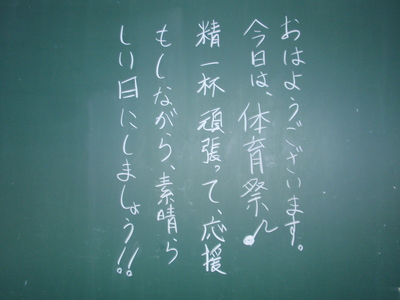 おはようございます。
今日は、体育祭♪
精一杯頑張って、応援
もしながら、素晴ら
しい日にしましょう!!